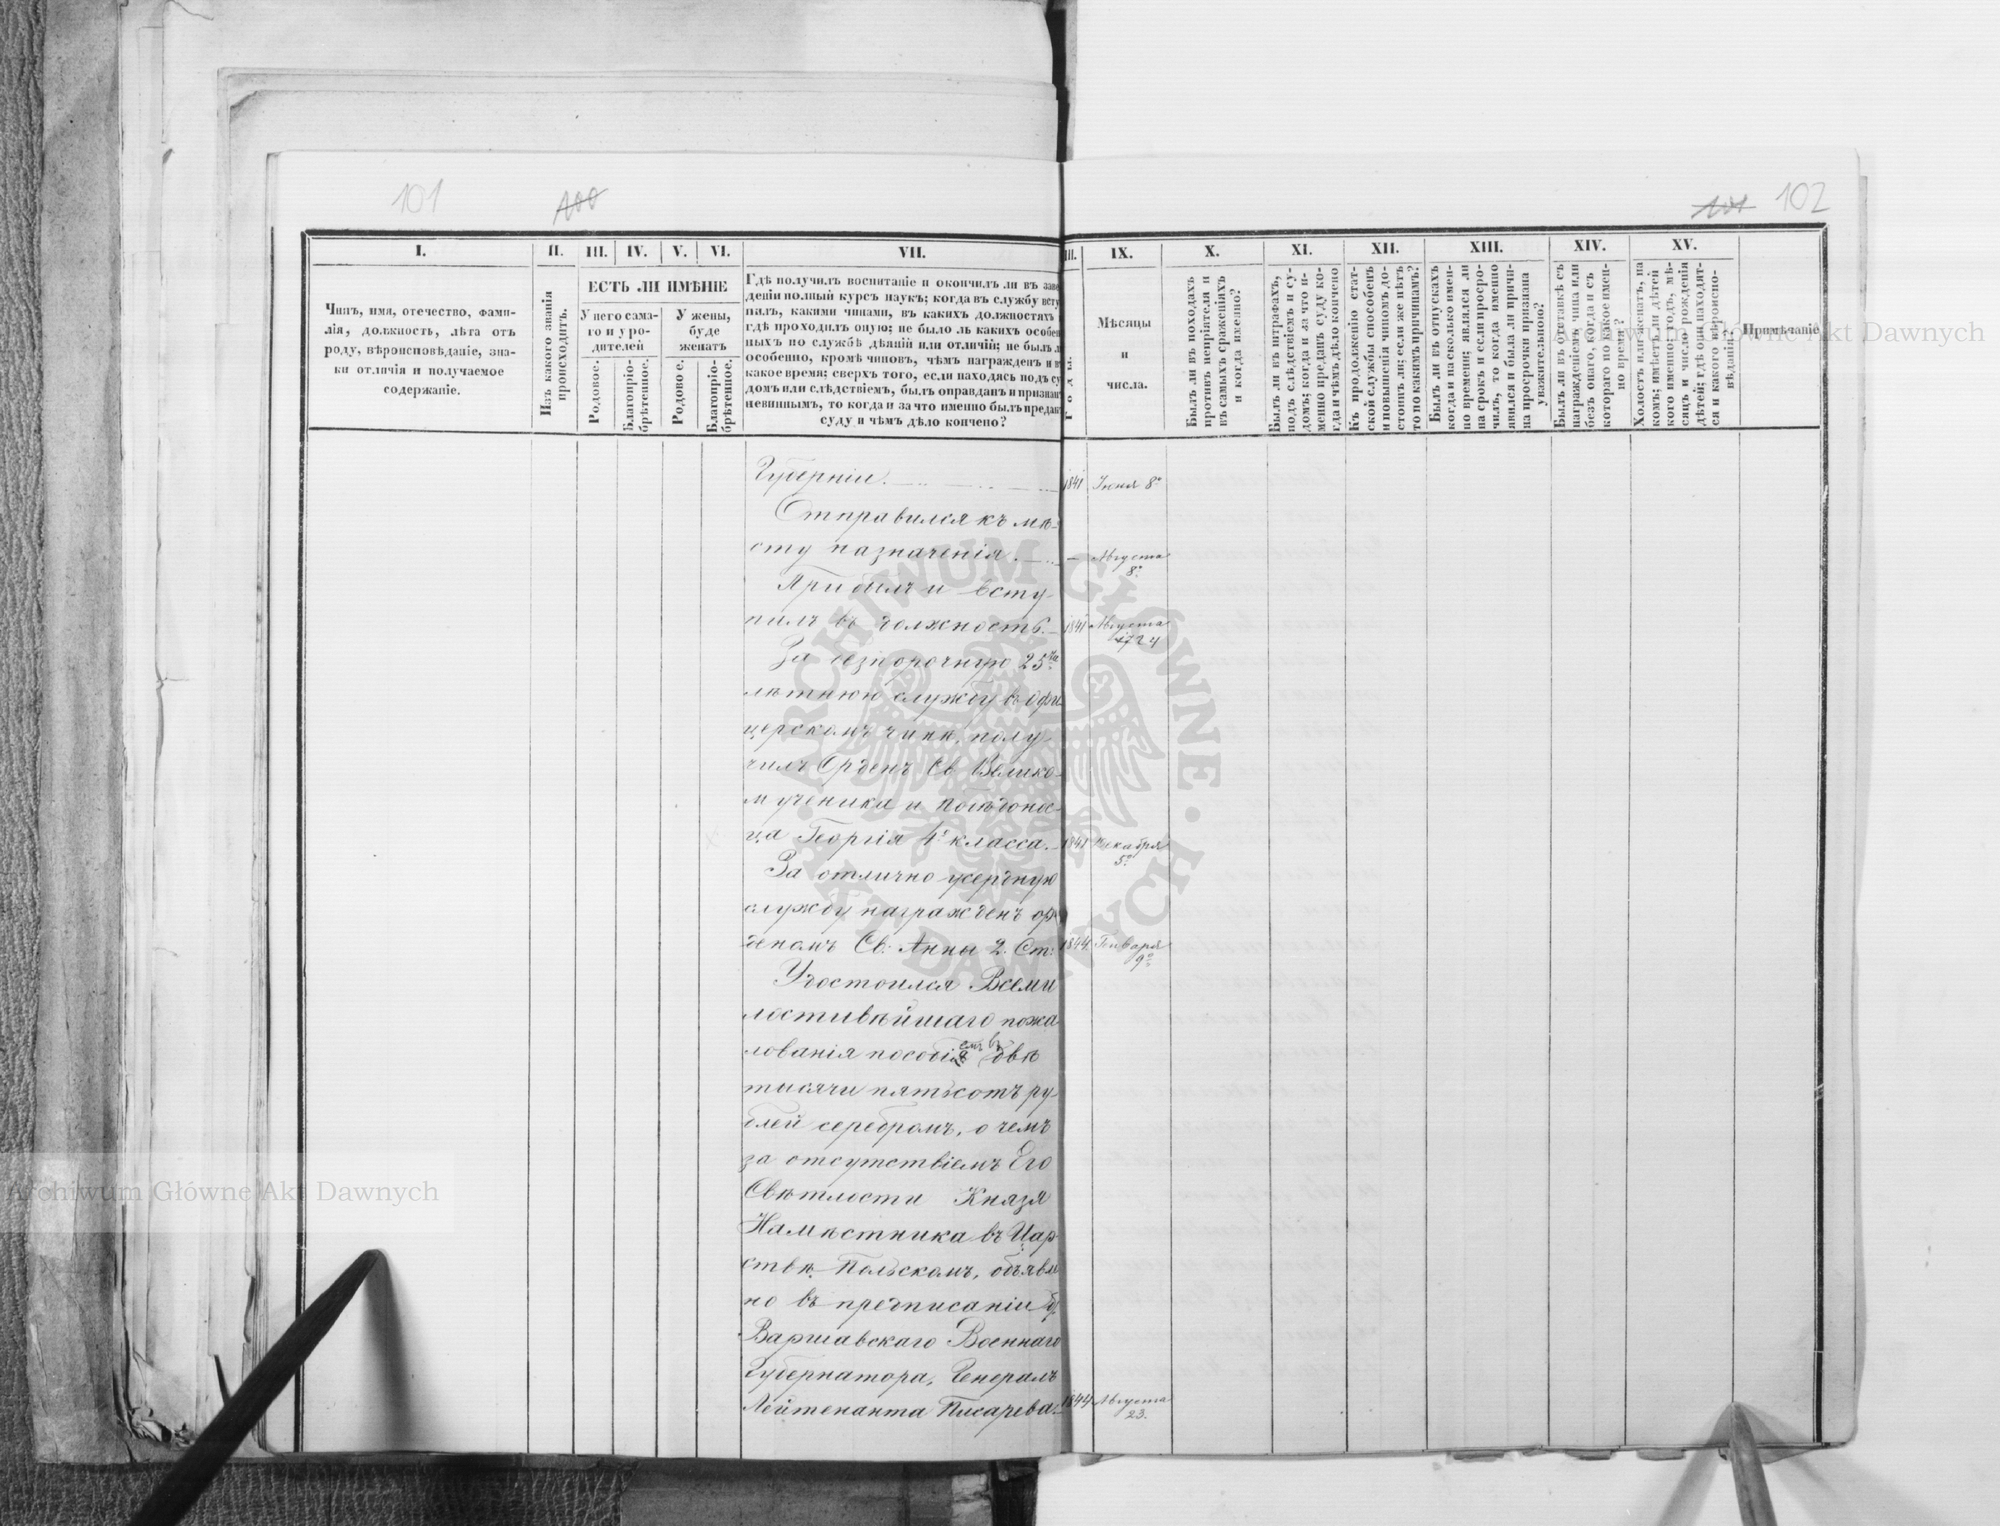 101
100
101 102
I.
II.
III.
IV.
V.
VI.
VII.
III.
IX.
X.
XI.
XII.
XIII.
XIV.
XV.
Чинъ, имя, отечество, фами-
лія, должность, лѣта отъ
роду, вѣроисповѣданіе, зна-
ки отличія и получаемое
содержаніе.
Изъ какого званія
происходитъ.
ЕСТЬ ЛИ ИМѢНІЕ
У него сама-
го и у ро-
дителей
У жены,
буде
женатъ
Родовое.
Благопріо-
брѣтенное.
Родовое.
Благопріо-
брѣтенное.
Гдѣ получилъ воспитаніе и окончилъ ли въ заве
деніи полный курсъ наукъ; когда въ службу всту
пилъ, какими чинами, въ какихъ должностяхъ
гдѣ проходилъ оную; не было ль какихъ особен
ныхъ по службѣ дѣяній или отличій; не былъ л
особенно, кромѣ чиновъ, чѣмъ награжденъ и в
какое время; сверхъ того, если находясь подъ су
домъ или слѣдствіемъ, былъ оправданъ и признан
невиннымъ, то когда и за что именно былъ предан
суду и чѣмъ дѣло кончено?
Годы.
Мѣсяцы
и
числа.
Былъ ли въ походахъ
противъ непріятеля и
въ самыхъ сраженіяхъ
и когда именно?
Былъ ли въ штрафахъ,
подъ слѣдствіемъ и су-
домъ; когда и за что и-
менно преданъ суду ко-
гда и чѣмъ дѣло кончено
Къ продолженію стат-
ской службы способенъ
и повышенія чиномъ до-
стоитъ ли; если же нѣтъ
то по какимъ причинамъ?
Былъ ли въ отпускахъ
когда и на сколько имен-
но времени; являлся ли
на срокъ и если просро-
чилъ, то когда именно
явился и была ли причи-
на просрочки признана
уважительною?
Былъ ли въ отставкѣ съ
награжденіемъ чина или
безъ онаго, когда и съ
котораго по какое имен-
но время?
Холостъ или женатъ, на
комъ; имѣетъ ли дѣтей
кого именно; годъ, мѣ-
сяцъ и число рожденія
дѣтей; гдѣ они находят-
ся и какого вѣроиспо-
вѣданія?
Примѣчаніе
Губерніи. 1841 Іюня 8º
Отправился къ мѣ-
сту назначенія. — Августа
8º
Прибылъ и всту-
пилъ въ должность. 1841 Августа
24
За безпорочную 25ти
лѣтнюю службу въ офи
церскомъ чинѣ, полу-
чилъ Орденъ Св. Велико-
мученика и Побѣдонос-
ца Георгія 4º класса. 1841 Декабря
5º
За отлично усердную
службу награжденъ ор-
деномъ Св: Анны 2. Ст: 1844 Генваря
9º
Удостоился Всеми
лостивѣйшаго пожа
лованія пособія ему въ двѣ
тысячи пятьсотъ ру-
блей серебромъ, о чемъ
за отсутствіемъ Его
Свѣтлости Князя
Намѣстника въ Цар-
ствѣ Польскомъ, объявле
но въ предписаніи б.
Варшавскаго Военнаго
Губернатора, Генералъ
Лейтенанта Писарева. 1844 Августа
23.
Archiwum Główne Akt Dawnych
Archiwum Główne Akt Dawnych
ARCHIWUM GŁÓWNE · AKT DAWNYCH ·